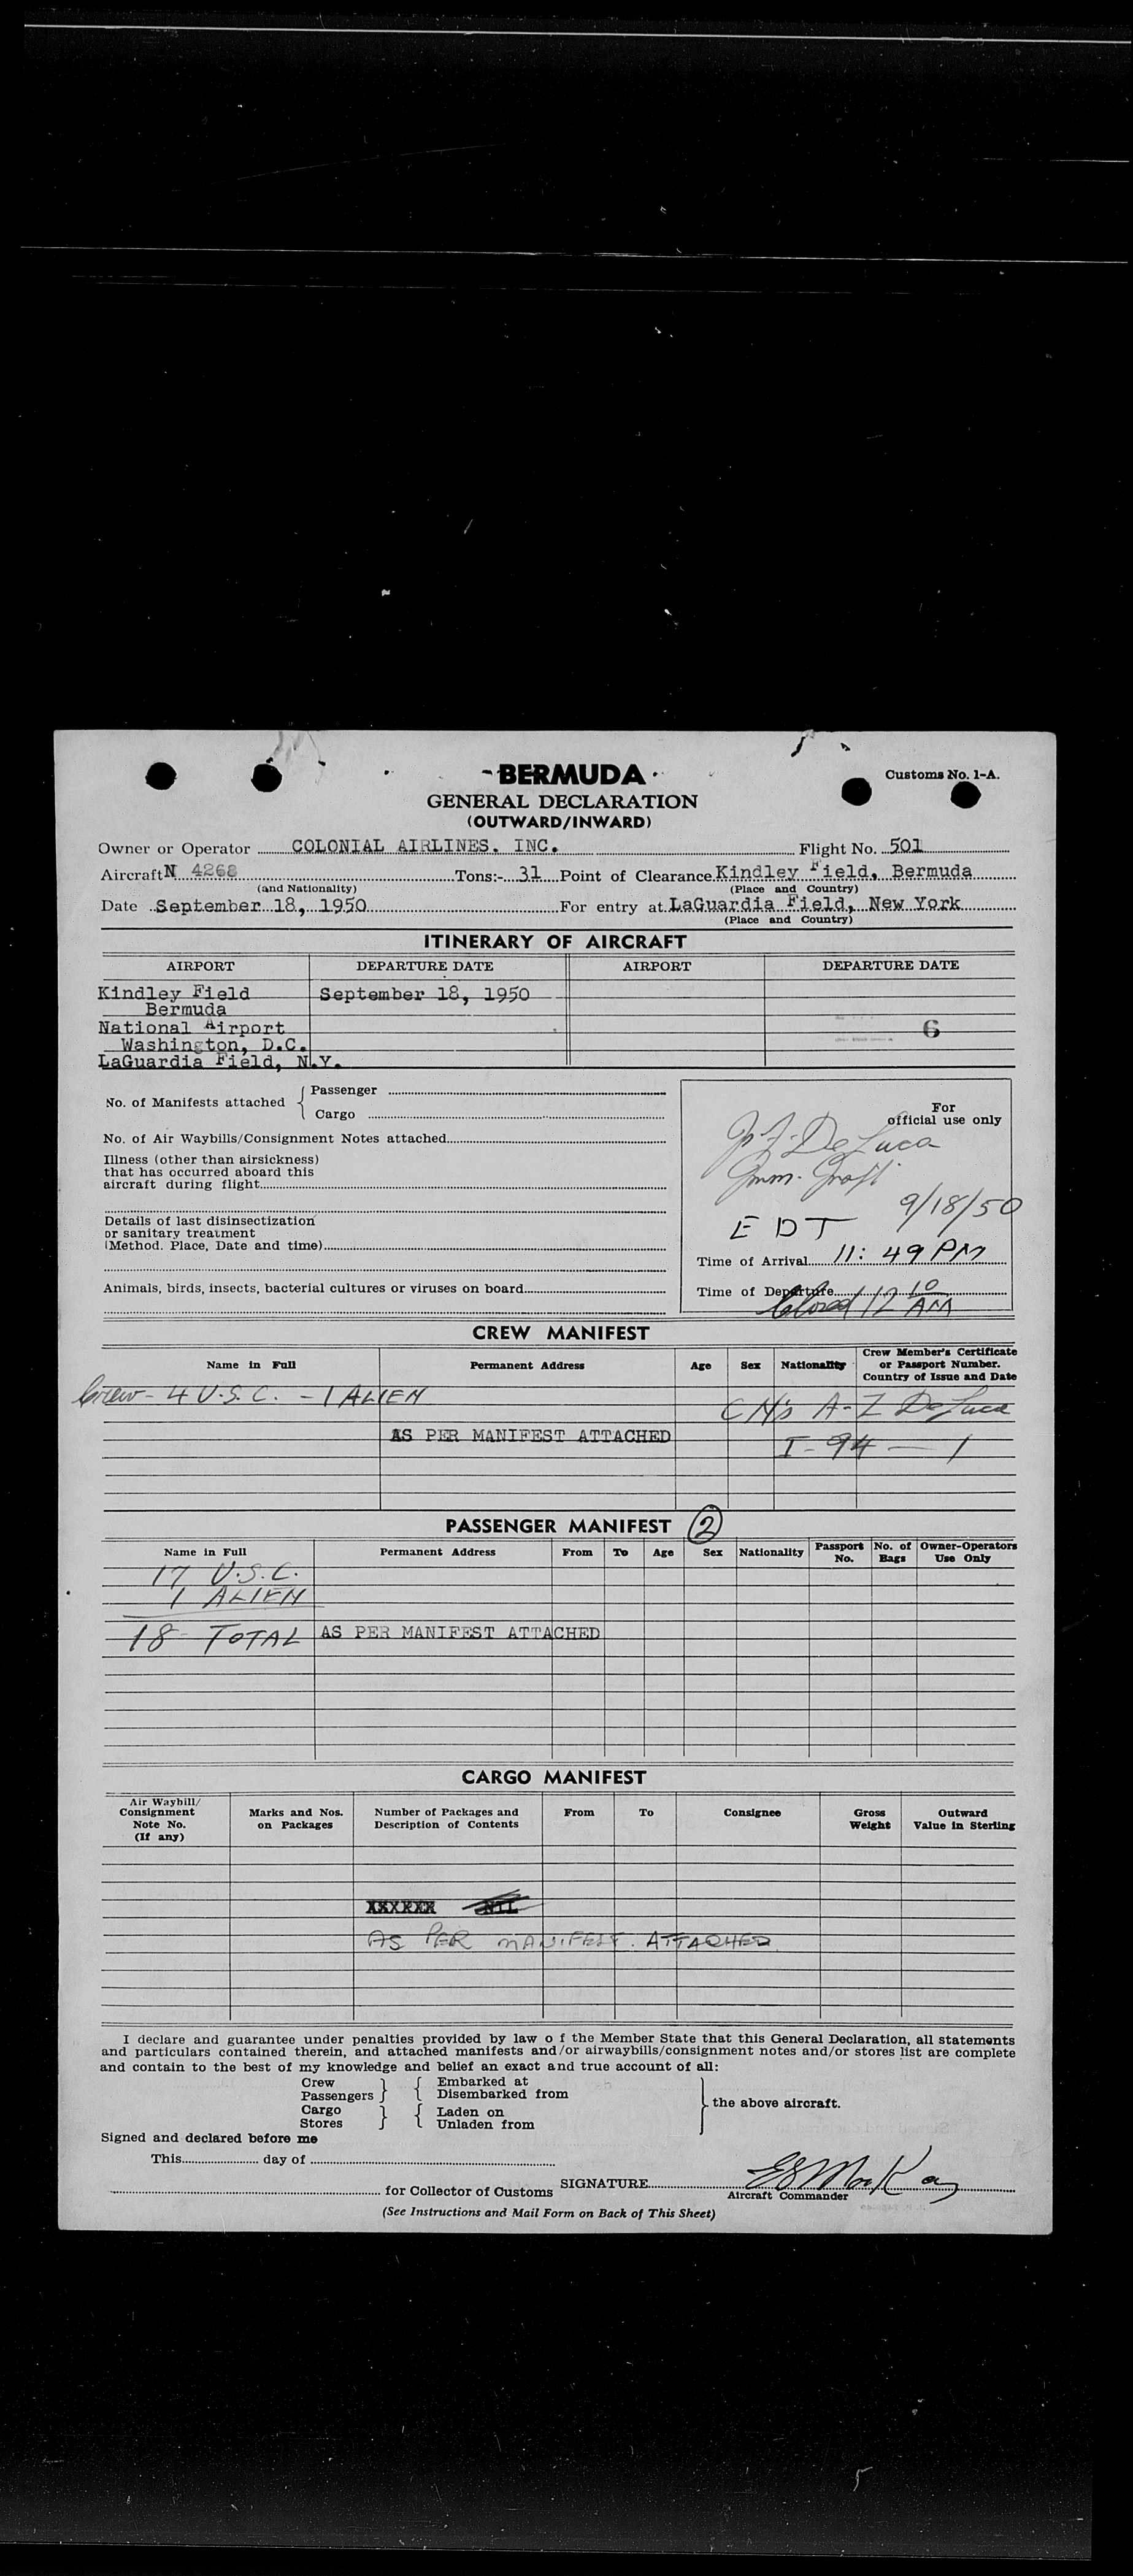 BERMUDA
Customs No. 1-A.
GENERAL DECLARATION
(OUTWARD/INWARD)
Owner or Operator COLONIAL AIRLINES. INC. Flight No. 501
Aircraft N 4268 Tons:- 31 Point of Clearance Kindley Field, Bermuda
(and Nationality) (Place and Country)
Date September 18, 1950 For entry at LaGuardia Field, New York
(Place and Country)
ITINERARY OF AIRCRAFT
AIRPORT DEPARTURE DATE AIRPORT DEPARTURE DATE
Kindley Field September 18, 1950
Bermuda
National Airport 6
Washington, D.C.
LaGuardia Field, N.Y.
No. of Manifests attached { Passenger
Cargo
No. of Air Waybills/Consignment Notes attached
Illness (other than airsickness)
that has occurred aboard this
aircraft during flight
Details of last disinsectization
or sanitary treatment
(Method. Place, Date and time)
Animals, birds, insects, bacterial cultures or viruses on board
For
official use only
De Luca
Imm.
9/18/50
EDT
Time of Arrival 11:49 PM
Time of Departure
Closed 12 10 AM
CREW MANIFEST
Name in Full Permanent Address Age Sex Nationality Crew Member's Certificate
or Passport Number.
Country of Issue and Date
Crew - 4 U.S.C. - 1 ALIEN
CN's A-Z De Luca
AS PER MANIFEST ATTACHED
I-94 — 1
PASSENGER MANIFEST 2
Name in Full Permanent Address From To Age Sex Nationality Passport No. No. of Bags Owner-Operators Use Only
17 U.S.C.
1 ALIEN
18 - TOTAL AS PER MANIFEST ATTACHED
CARGO MANIFEST
Air Waybill/
Consignment
Note No.
(If any)
Marks and Nos.
on Packages
Number of Packages and
Description of Contents
From To Consignee
Gross
Weight
Outward
Value in Sterling
XXXXXX NIL
AS PER MANIFEST. ATTACHED
I declare and guarantee under penalties provided by law o f the Member State that this General Declaration, all statements
and particulars contained therein, and attached manifests and/or airwaybills/consignment notes and/or stores list are complete
and contain to the best of my knowledge and belief an exact and true account of all:
Crew } { Embarked at
Passengers } { Disembarked from
} the above aircraft.
Cargo } { Laden on
Stores } { Unladen from
Signed and declared before me
This day of
for Collector of Customs SIGNATURE
Aircraft Commander
(See Instructions and Mail Form on Back of This Sheet)
5